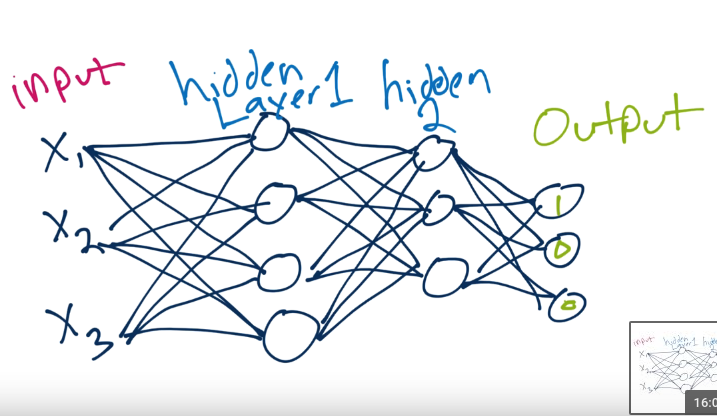 input
hidden Layer 1
hidden 2
Output
X1
X2
X3
1
0
0
input
hidden Layer1
X1
X2
X3
16:0